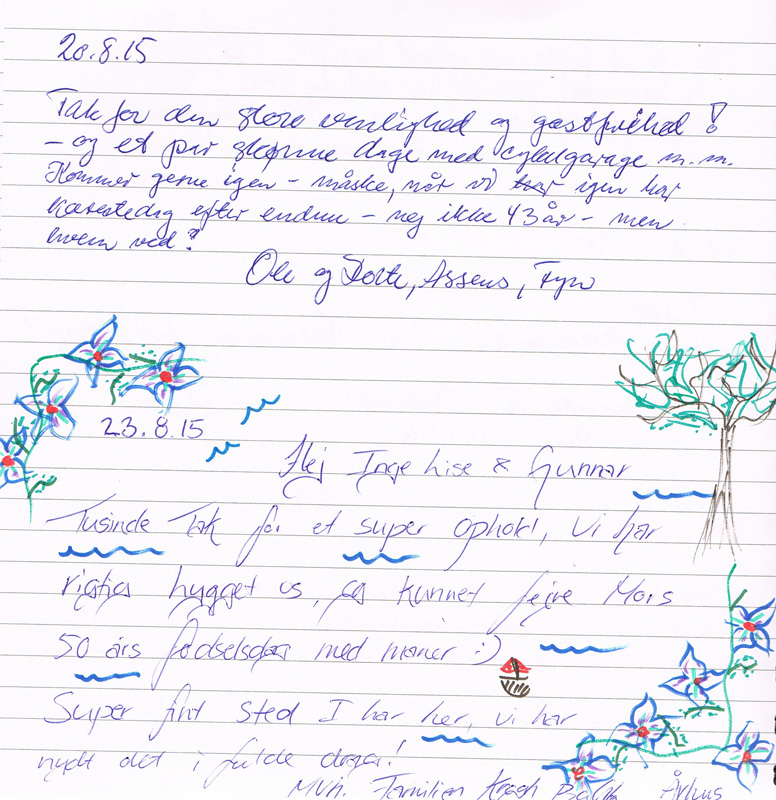 20.8.15
Tak for den store venlighed og gæstfrihed!
- og et par skønne dage med cykelgarage m.m.
Kommer gerne igen - måske, når vi igen har
efter endnu - nej ikke 43 år - men
hvem ved?
Ole og Dorte, Assens, Fyn
23.8.15
Hej Inge Lise & Gunnar
Tusinde Tak for et super ophold, vi har
rigtig hygget os, og kunnet fejre Mors
50 års fødselsdag med maner :)
Super fint sted I har her, vi har
nydt det i fulde drag!
Mvh. Familien Århus